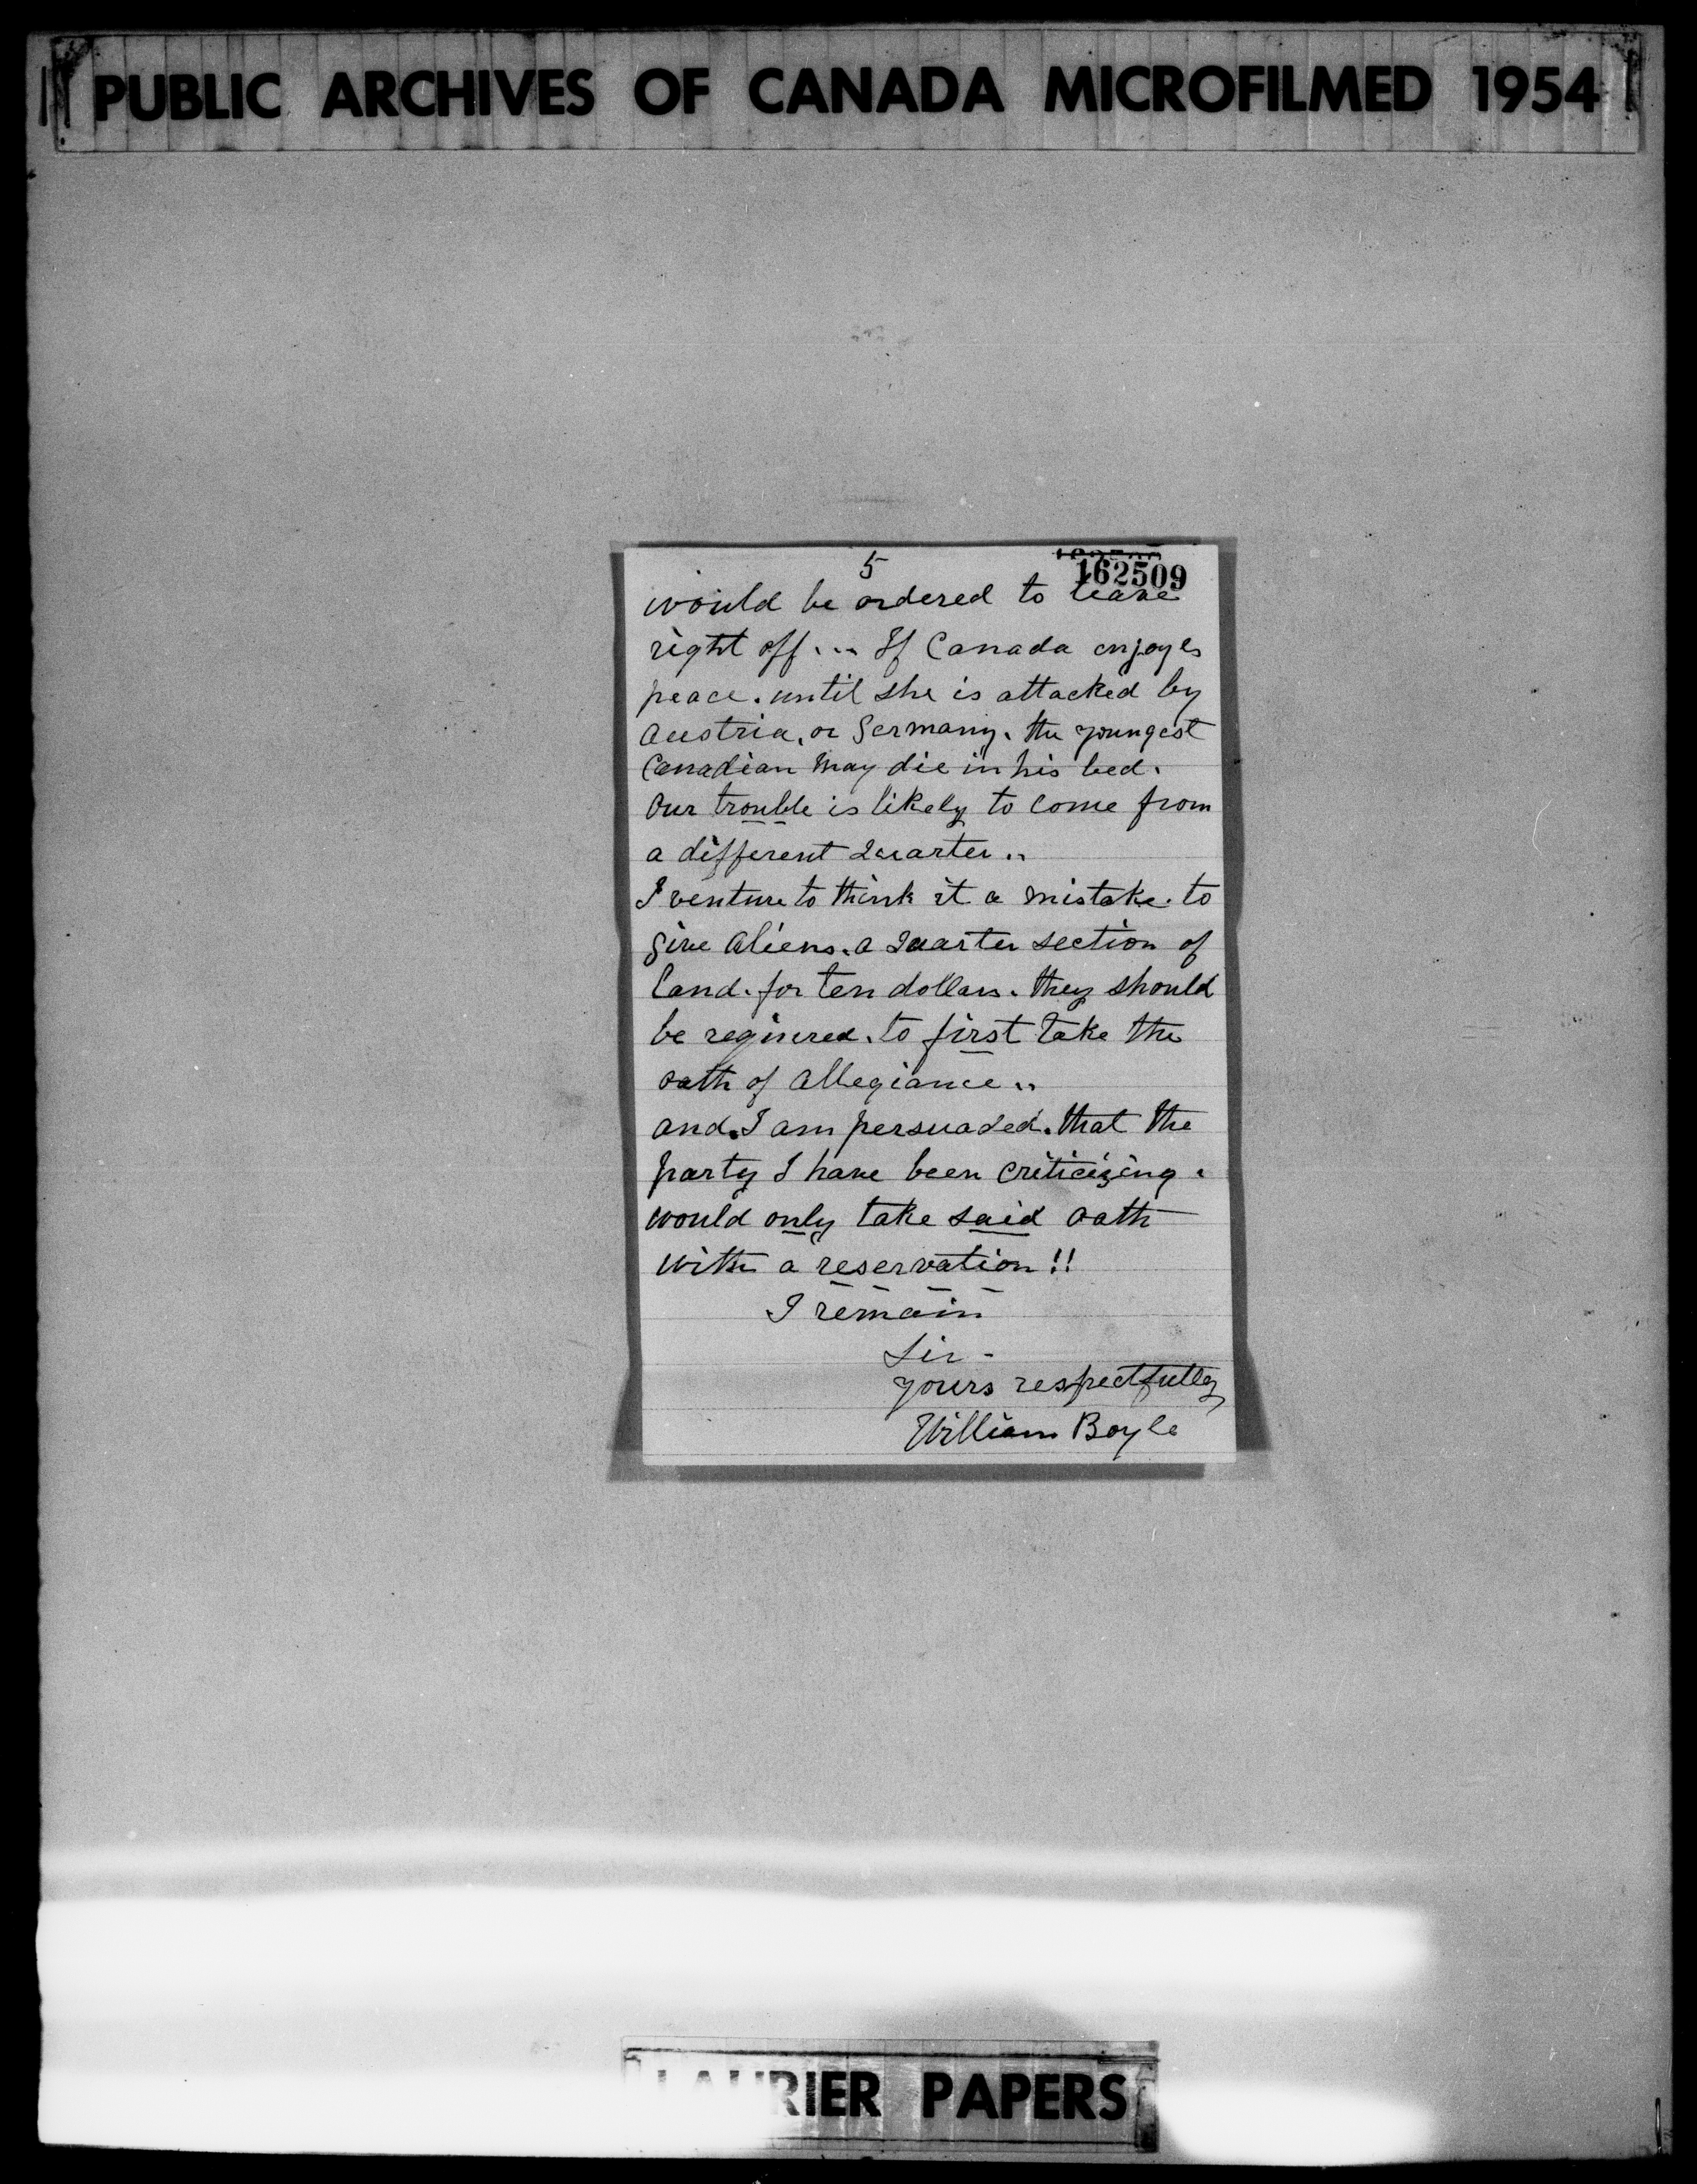 PUBLIC ARCHIVES OF CANADA MICROFILMED 1954
5
162509
would be ordered to leave
right off... If Canada enjoyes
peace. until she is attacked by
Austria, or Germany. the youngest
Canadian may die in his bed.
Our trouble is likely to come from
a different Quarter..
I venture to think it a mistake. to
give Aliens. a Quarter section of
land. for ten dollars. they should
be reqiured. to first take the
oath of Allegiance..
and. I am persuaded. that the
party I have been criticizing.
would only take said oath
with a reservation!!
I remain
Sir -
yours respectfully
William Boyle
LAURIER PAPERS